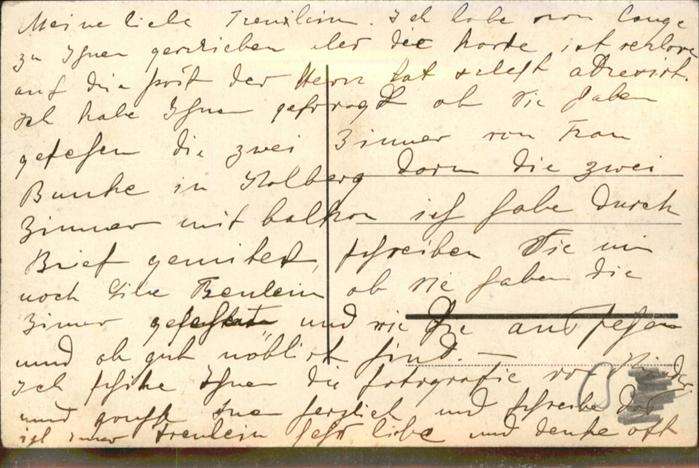 Meine liebe Freulein. Ich habe von lange
zu Ihnen gerschieben aber die karte ist verlore
auf die post der Herr hat selbst adresirt.
ich habe Ihnen gefragt ob Sie haben
gesehen die zwei Zimmer von Frau
Bunke in Kolberg darum die zwei
Zimmer mit balkon ich habe durch
Brief gemitet, schreiben Sie mir
noch liebe Freulein ob sie haben die
Zimer und wie sie aussehen
und ob gut möblirt sind. —
ich schike Ihnen die fotografie von
und herzlich und schreibe
ich immer Freulein sehr liebe und denke oft